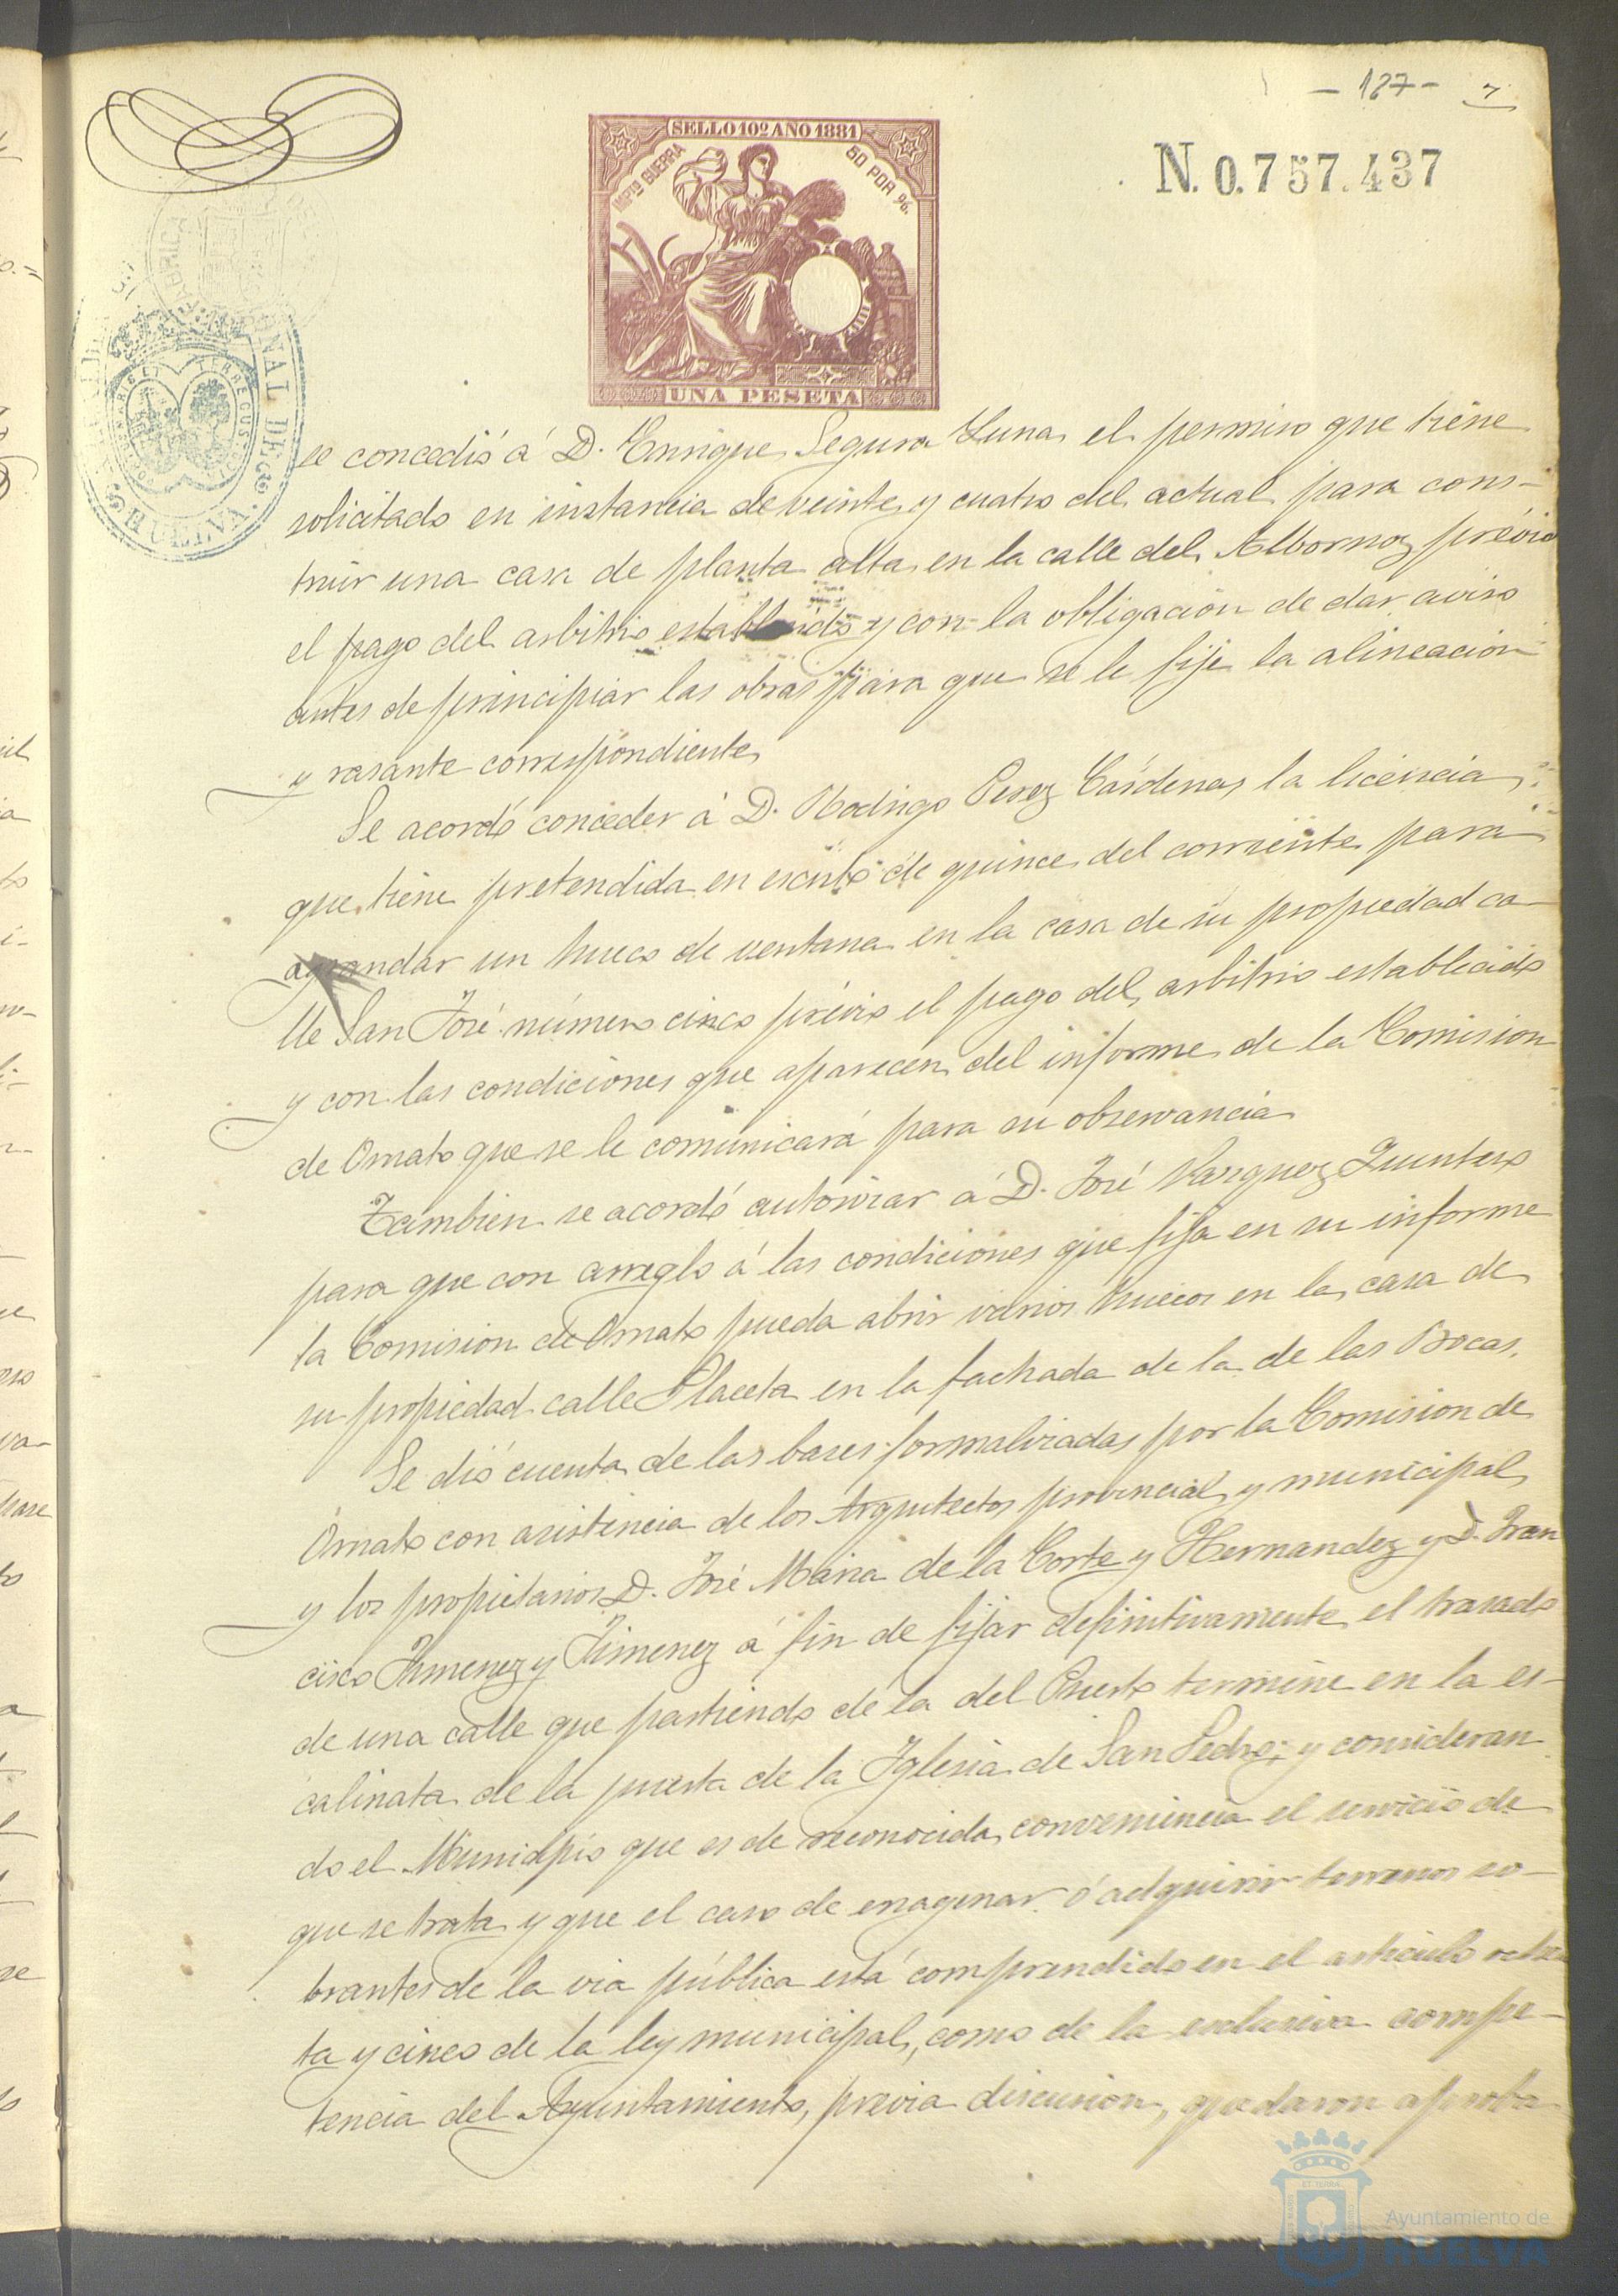 - 127 - 7
SELLO 10º AÑO 1881
IMPTO GUERRA
50 POR %
UNA PESETA
N. 0.757.437
se concedió á D. Enrique Segura Luna el permiso que tiene
solicitado en instancia de veinte y cuatro del actual para cons-
truir una casa de planta alta en la calle del Albornoz prévio
el pago del arbitrio establecido y con la obligacion de dar aviso
antes de principiar las obras para que se le fije la alineacion
y rasante correspondiente
Se acordó conceder á D. Rodrigo Perez Cárdenas la licencia
que tiene pretendida en escrito de quince del corriente para
agrandar un hueco de ventana en la casa de su propiedad ca-
lle San José número cinco prévio el pago del arbitrio establecido
y con las condiciones que aparecen del informe de la Comision
de Ornato que se le comunicará para su observancia
Tambien se acordó autorizar á D. José Vazquez Quintero
para que con arreglo á las condiciones que fija en su informe
la Comision de Ornato pueda abrir varios huecos en la casa de
su propiedad calle Placeta en la fachada de la de las Bocas.
Se dió cuenta de las bases formalizadas por la Comision de
Ornato con asistencia de los Arquitectos provincial y municipal
y los propietarios D. José Maria de la Corte y Hernandez y D. Fran
cisco Jimenez y Jimenez á fin de fijar definitivamente el trazado
de una calle que partiendo de la del Puerto termine en la es-
calinata de la puerta de la Iglesia de San Pedro; y consideran
do el Municipio que es de reconocida conveniencia el servicio de
que se trata y que el caso de enagenar ó adquirir terrenos so-
brantes de la via pública está comprendido en el articulo ochen
ta y cinco de la ley municipal, como de la esclusiva compe-
tencia del Ayuntamiento, previa discusion, quedaron aproba
Ayuntamiento de
HUELVA